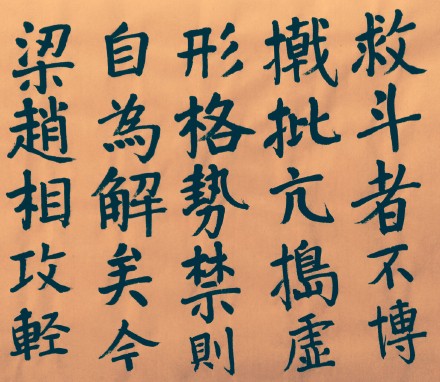 救斗者不博
撠批亢搗虛
形格勢禁則
自為解矣今
梁趙相攻輕